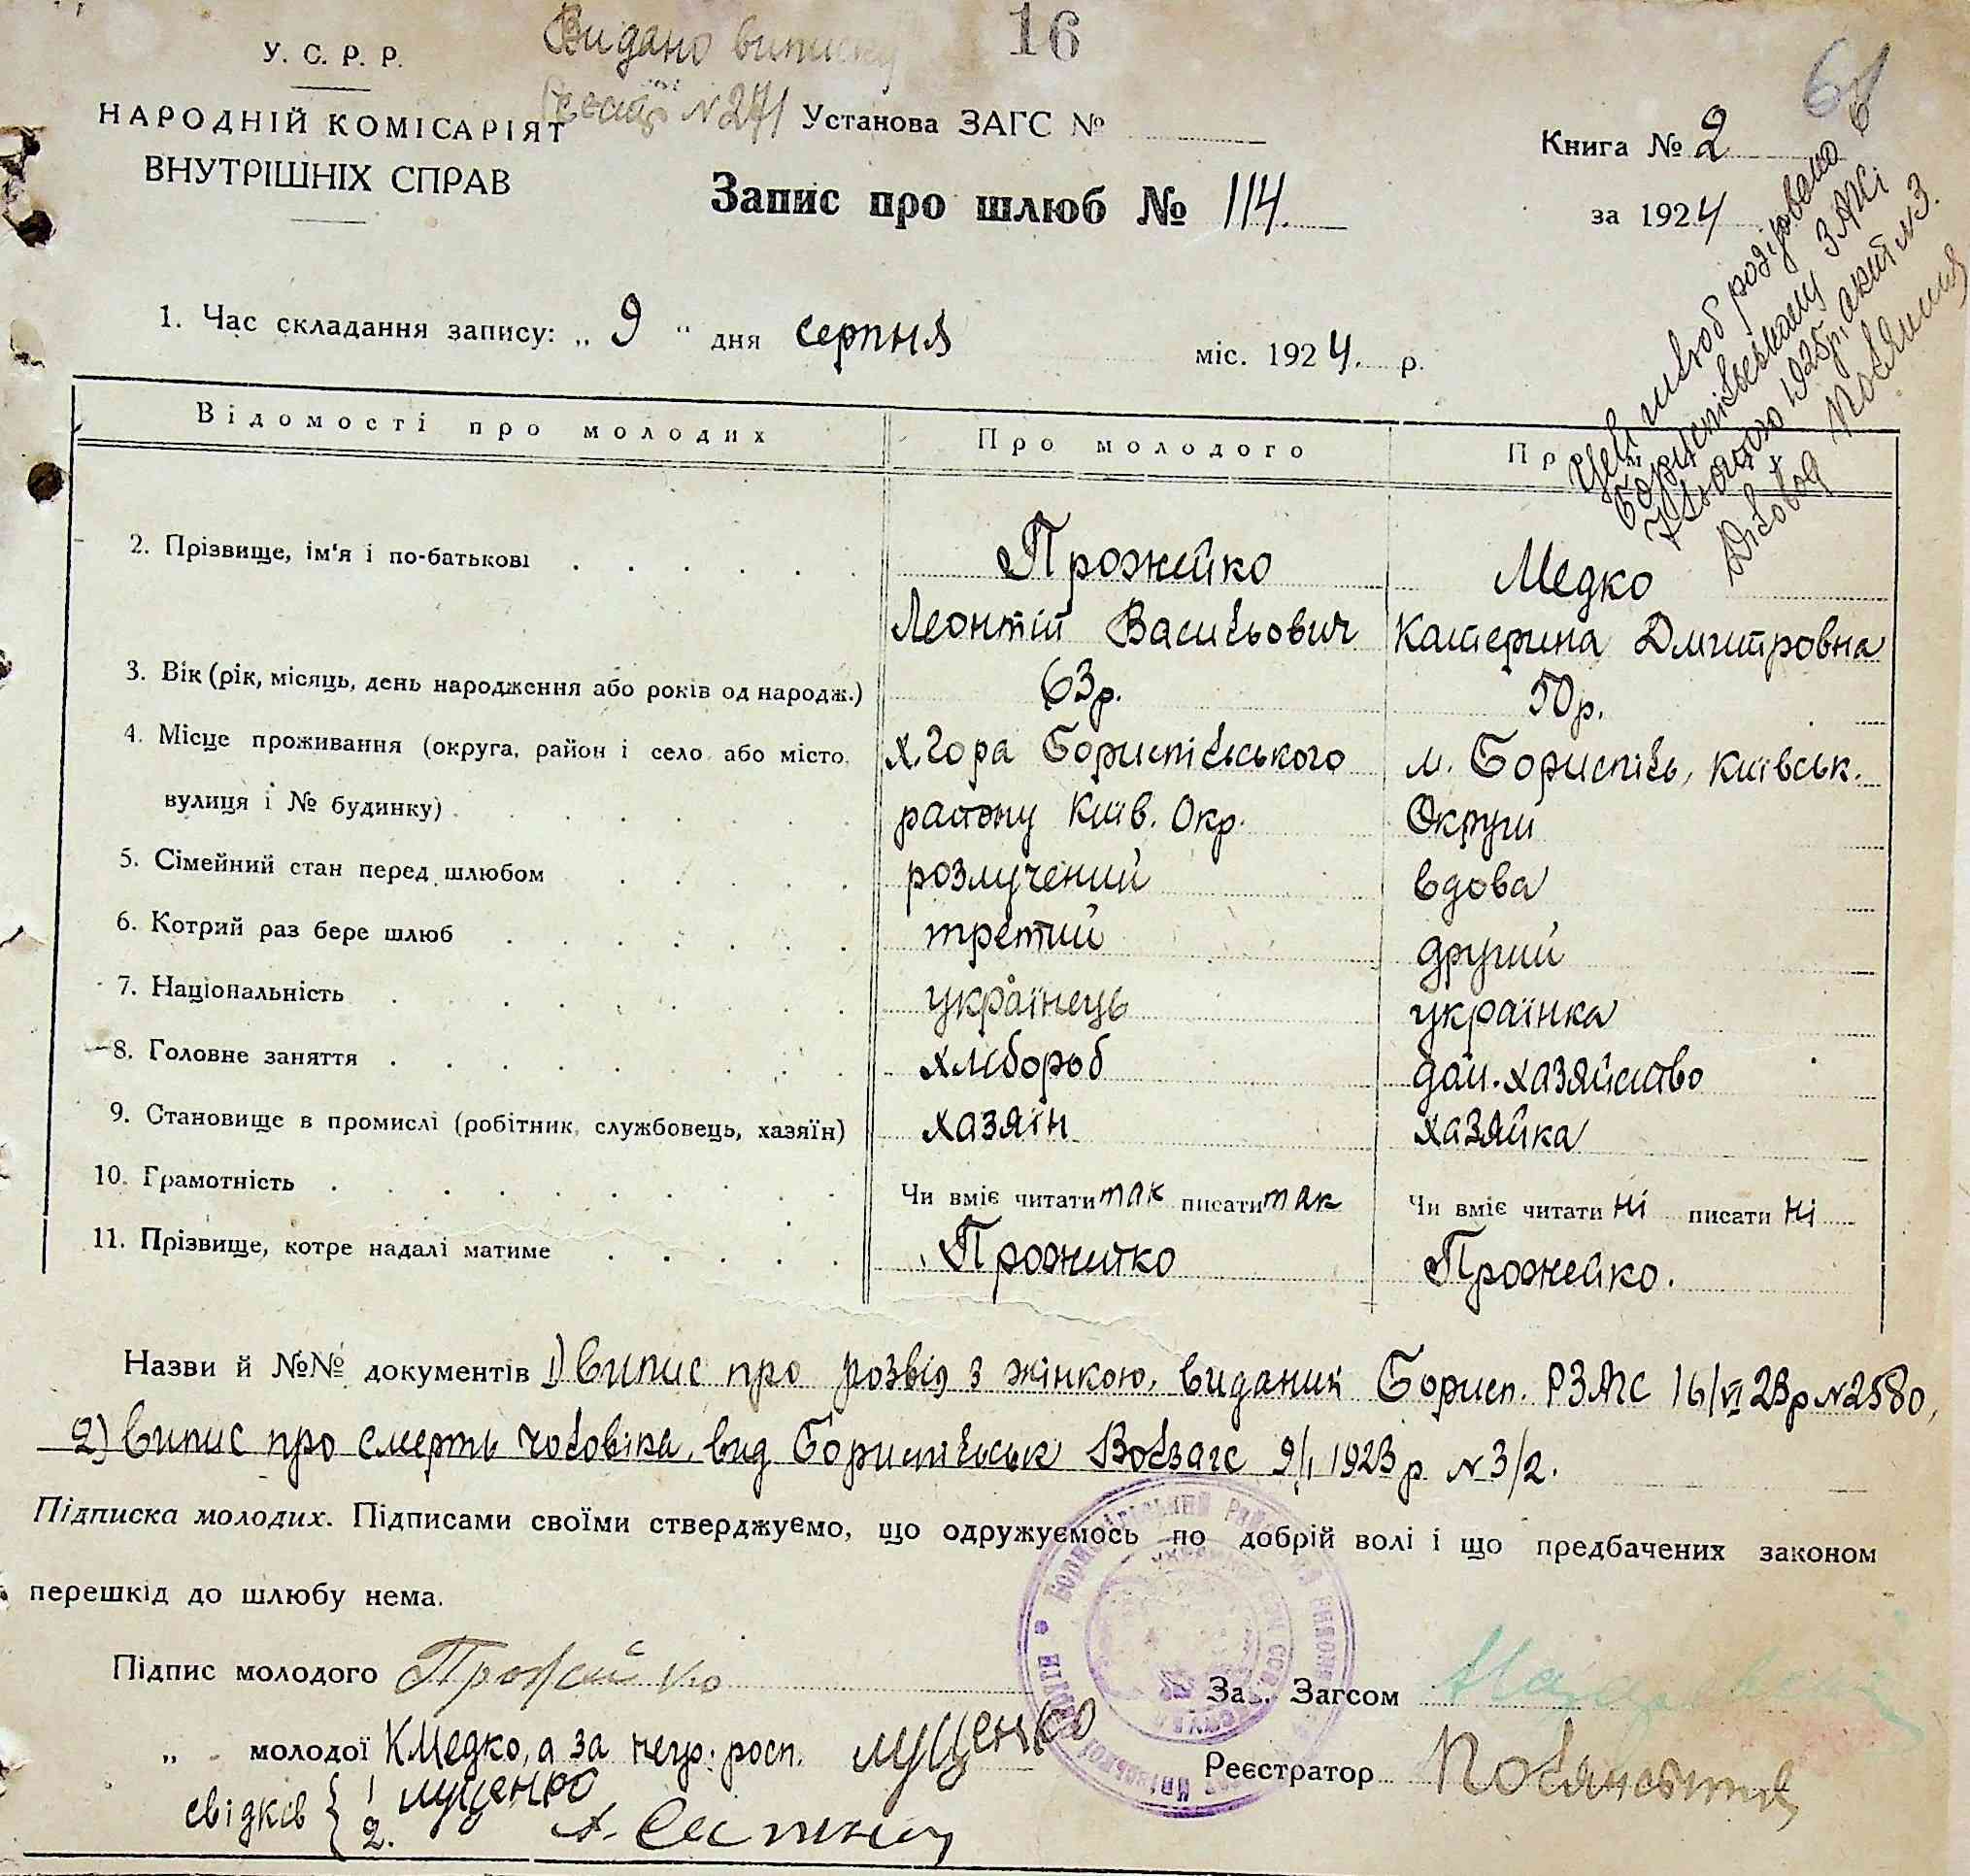 16
У. С. Р. Р.
Видано виписку
№ 271
61
НАРОДНІЙ КОМІСАРІЯТ
ВНУТРІШНІХ СПРАВ
Установа ЗАГС №
Книга № 2
Запис про шлюб № 114.
за 1924
Цей шлюб розірвано в
Бориспільському ЗАГСі
7 Лютого 1925р. акт №3.
Діловод
1. Час складання запису: „ 9 “ дня серпня міс. 1924. р.
Відомості про молодих
Про молодого
2. Прізвище, ім'я і по-батькові
Прожейко
Медко
Леонтій Васильович
Катерина Дмитровна
3. Вік (рік, місяць, день народження або років од народж.)
63р.
50р.
4. Місце проживання (округа, район і село або місто,
х. Гора Бориспільського
м. Бориспіль, Київськ.
вулиця і № будинку)
району Київ. Окр.
Округи
5. Сімейний стан перед шлюбом
розлучений
вдова
6. Котрий раз бере шлюб
третий
другий
7. Національність
українець
українка
8. Головне заняття
хлібороб
дом. хазяйство
9. Становище в промислі (робітник, службовець, хазяїн)
хазяін
хазяйка
10. Грамотність
Чи вміє читати так писати так
Чи вміє читати ні писати ні
11. Прізвище, котре надалі матиме
Прожейко
Прожейко.
Назви й №№ документів 1) Випис про розвід з жінкою, виданий Борисп. РЗАГС 16/VI 23р №2580,
2) Випис про смерть чоловіка, вид Бориспільськ Волзагс 9/I 1923 р. № 3/2.
Підписка молодих. Підписами своїми стверджуємо, що одружуємось по добрій волі і що предбачених законом
перешкід до шлюбу нема.
Підпис молодого Прожейко
Зав. Загсом
„ молодої К Медко, а за негр. росп. Луценко
Реєстратор
свідків { 1 Луценко
2.